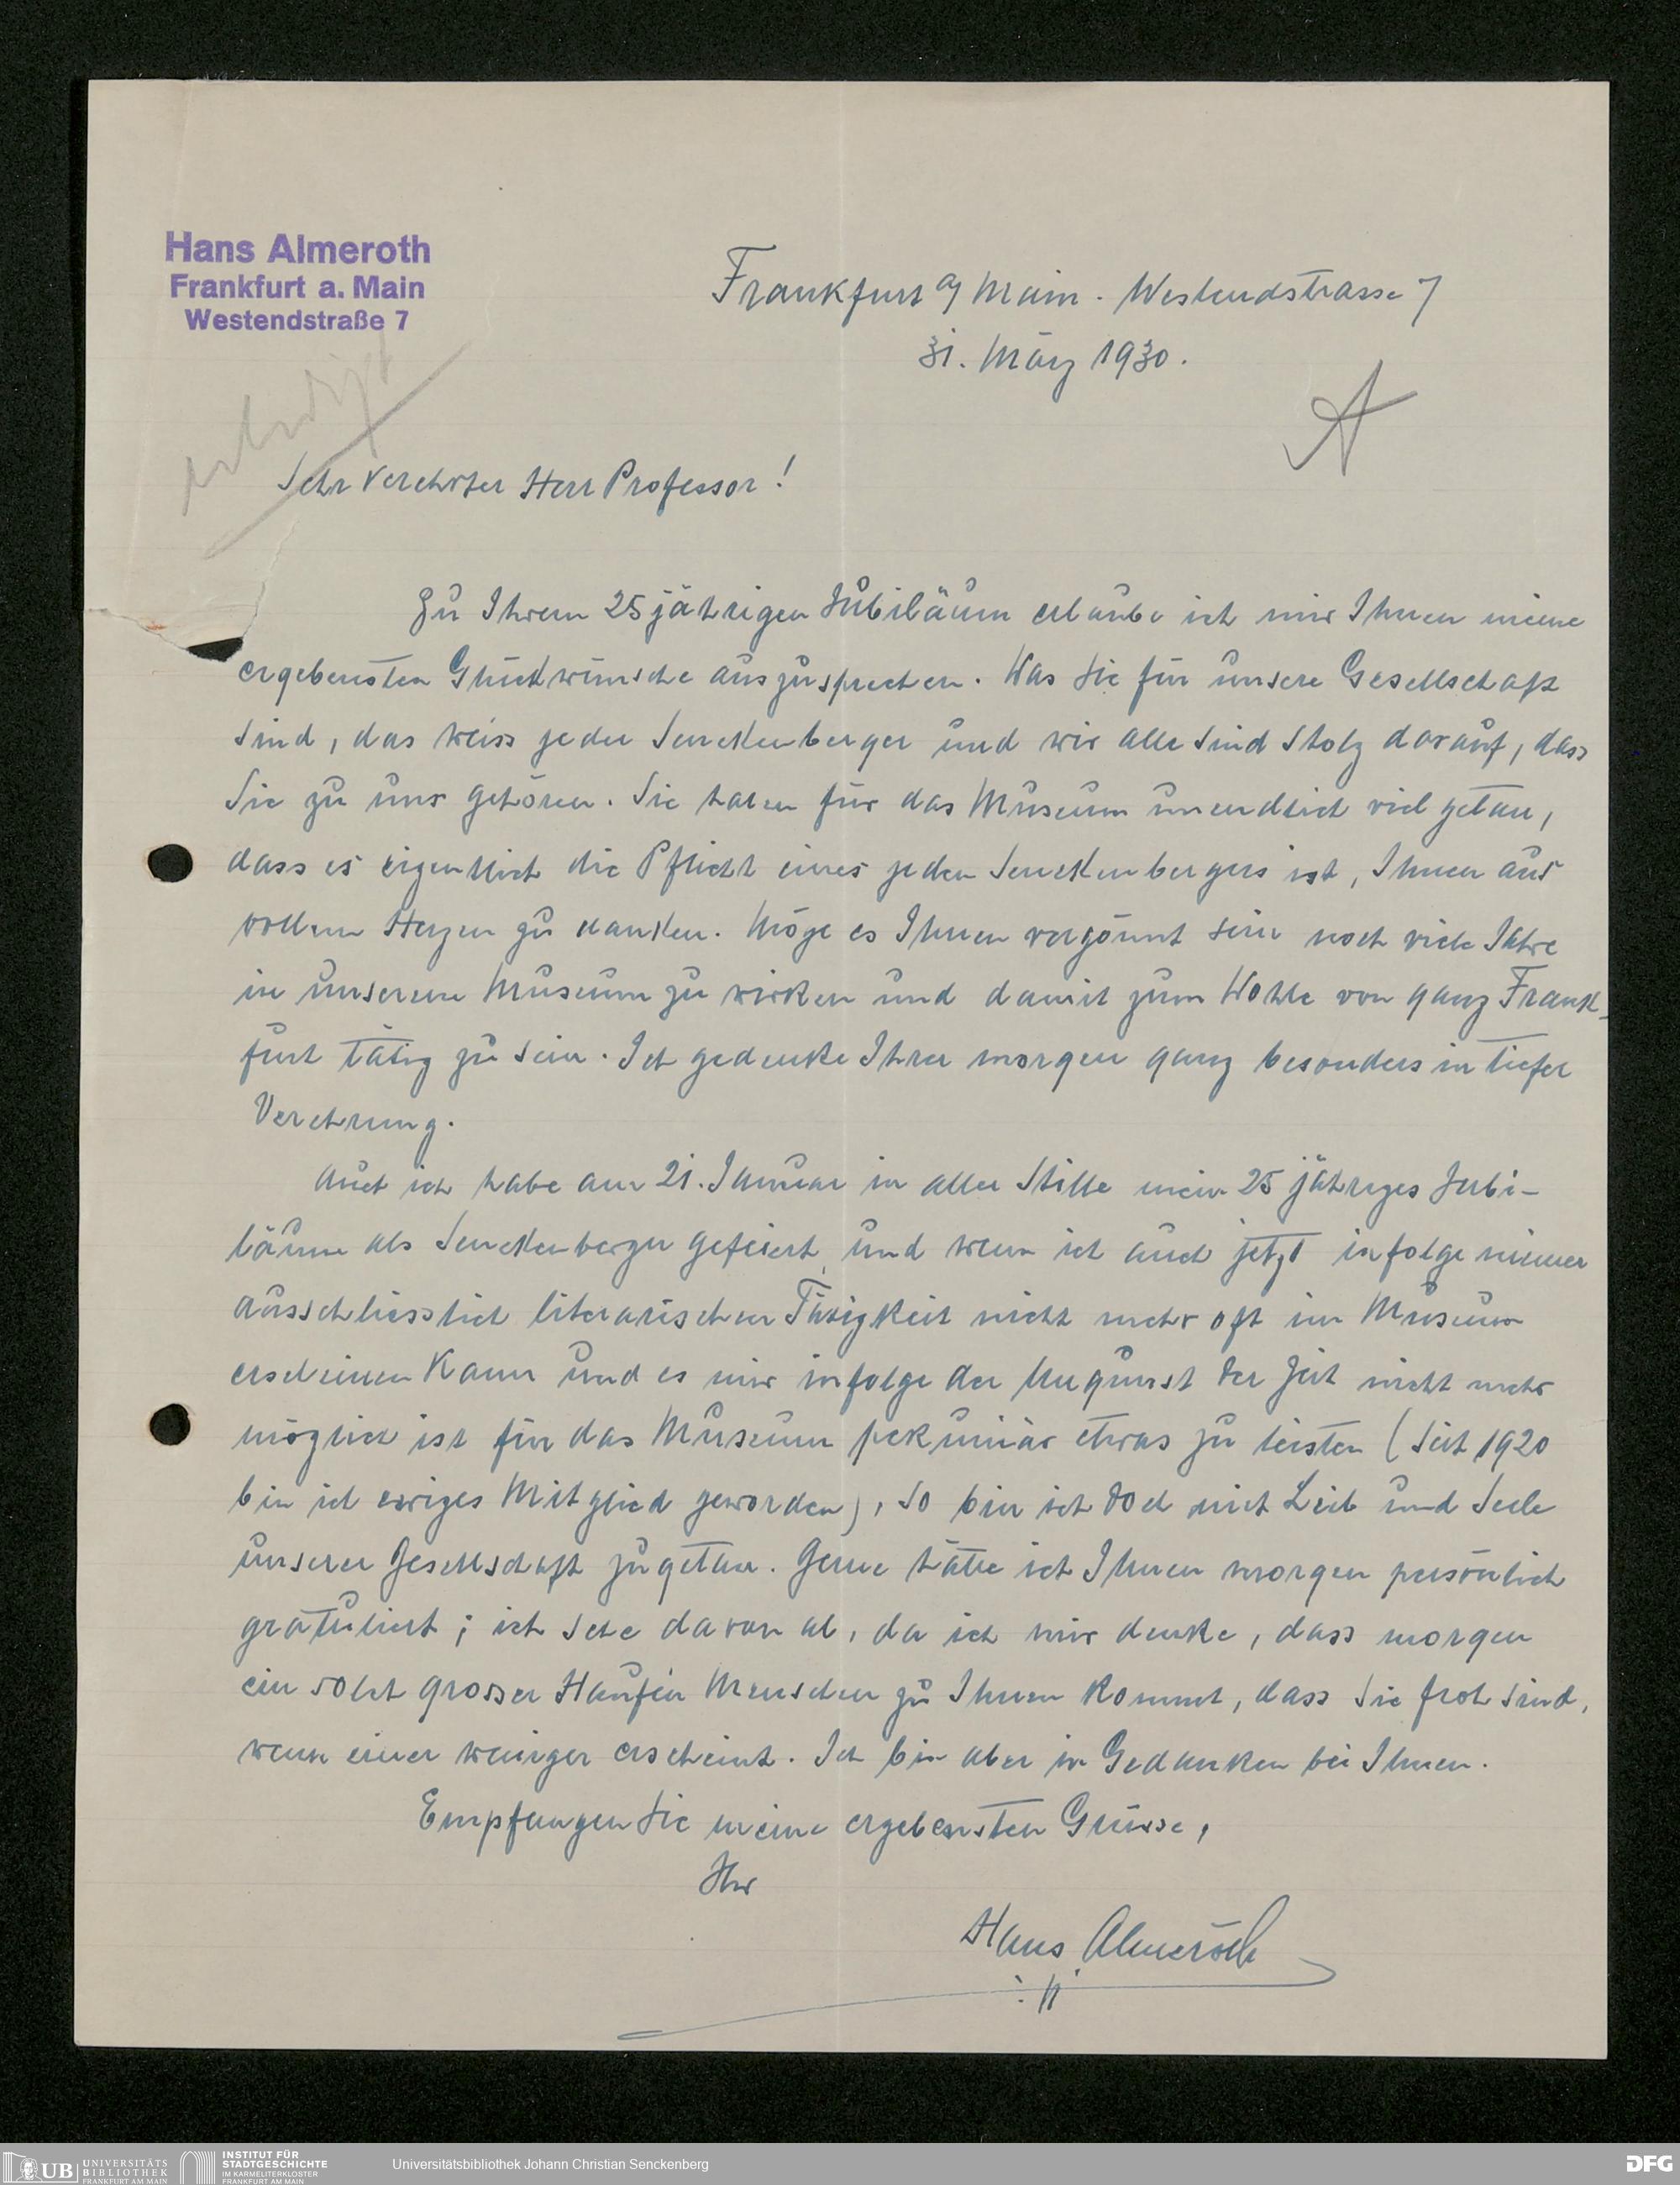 Hans Almeroth
Frankfurt a. Main
Westendstraße 7
Frankfurt a/Main. Westendstrasse 7
31. März 1930.
A
erledigt
Sehr verehrter Herr Professor!
Zu Ihrem 25 jährigen Jubiläum erlaube ich mir Ihnen meine
ergebensten Glückwünsche auszusprechen. Was Sie für unsere Gesellschaft
sind, das weiss jeder Senckenberger und wir alle sind stolz darauf, dass
Sie zu uns gehören. Sie haben für das Museum unendlich viel getan,
dass es eigentlich die Pflicht eines jeden Senckenbergers ist, Ihnen aus
vollem Herzen zu danken. Möge es Ihnen vergönnt sein noch viele Jahre
in unserem Museum zu wirken und damit zum Wohle von ganz Frank-
furt tätig zu sein. Ich gedenke Ihrer morgen ganz besonders in tiefer
Verehrung.
Auch ich habe am 21. Januar in aller Stille mein 25 jähriges Jubi-
läum als Senckenberger gefeiert, und wenn ich auch jetzt infolge meiner
ausschliesslich literarischen Tätigkeit nicht mehr oft im Museum
erscheinen kann und es mir infolge der Ungunst der Zeit nicht mehr
möglich ist für das Museum pekuniär etwas zu leisten (seit 1920
bin ich ewiges Mitglied geworden), so bin ich doch mit Leib und Seele
unserer Gesellschaft zugetan. Gerne hätte ich Ihnen morgen persönlich
gratuliert; ich sehe davon ab, da ich mir denke, dass morgen
ein solch grosser Haufen Menschen zu Ihnen kommt, dass Sie froh sind,
wenn einer weniger erscheint. Ich bin aber in Gedanken bei Ihnen.
Empfangen Sie meine ergebensten Grüsse,
Ihr
Hans Almeroth
UB UNIVERSITÄTS
BIBLIOTHEK
FRANKFURT AM MAIN
INSTITUT FÜR
STADTGESCHICHTE
IM KARMELITERKLOSTER
FRANKFURT AM MAIN
Universitätsbibliothek Johann Christian Senckenberg
DFG